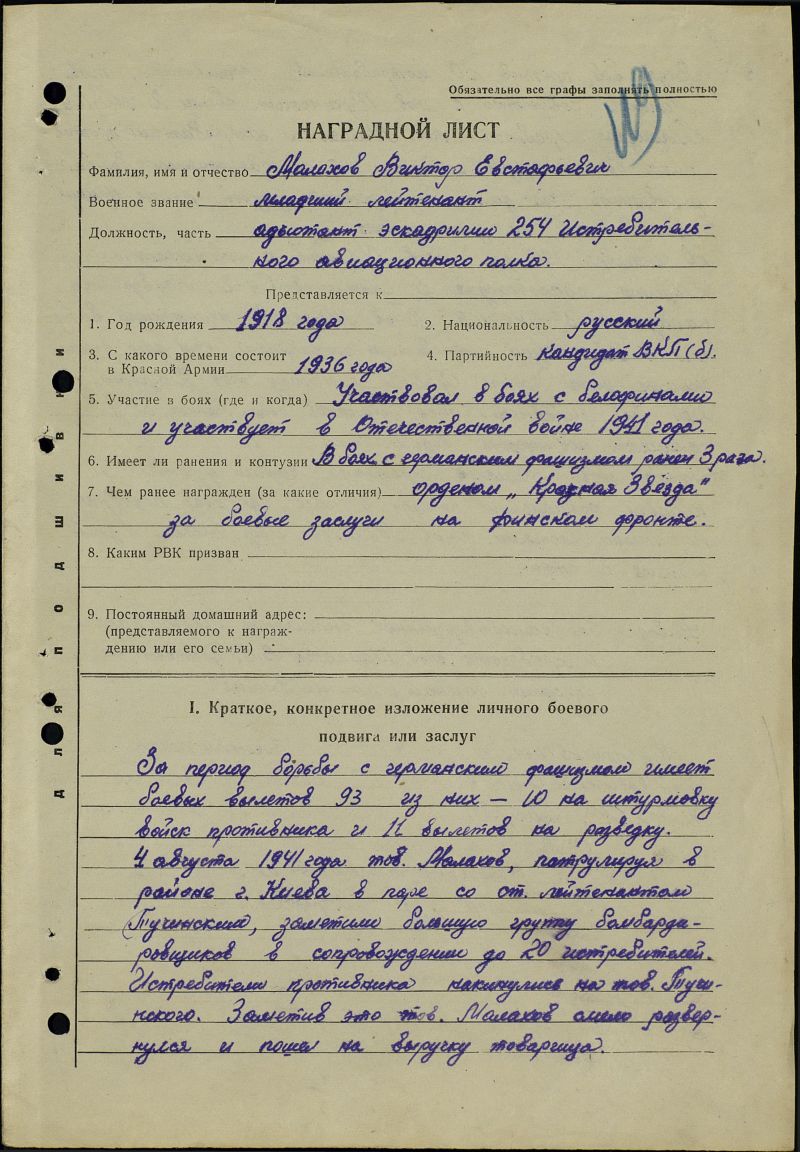 Обязательно все графы заполнять полностью
НАГРАДНОЙ ЛИСТ
Фамилия, имя и отчество Малахов Виктор Евстафьевич
Военное звание младший лейтенант
Должность, часть адъютант эскадрилии 254 Истребитель-
ного авиационного полка.
Представляется к
1. Год рождения 1918 года 2. Национальность русский
3. С какого времени состоит
в Красной Армии 1936 года 4. Партийность кандидат ВКП(б).
5. Участие в боях (где и когда) Участвовал в боях с белофинами
и участвует в Отечественной войне 1941 года.
6. Имеет ли ранения и контузии В боях с германским фашизмом ранен 3 раза.
7. Чем ранее награжден (за какие отличия) орденом „Красная Звезда"
за боевые заслуги на финском фронте.
8. Каким РВК призван
9. Постоянный домашний адрес:
(представляемого к награж-
дению или его семьи)
Для подшивки
I. Краткое, конкретное изложение личного боевого
подвига или заслуг
За период борьбы с германским фашизмом имеет
боевых вылетов 93 из них — 10 на штурмовку
войск противника и 11 вылетов на разведку.
4 августа 1941 года тов. Малахов, патрулируя в
районе г. Киева в паре со ст. лейтенантом
Тучинским, заметили большую группу бомбарди-
ровщиков в сопровождении до 20 истребителей.
Истребители противника накинулись на тов. Тучи-
нского. Заметив это тов. Малахов смело развер-
нулся и пошел на выручку товарища.